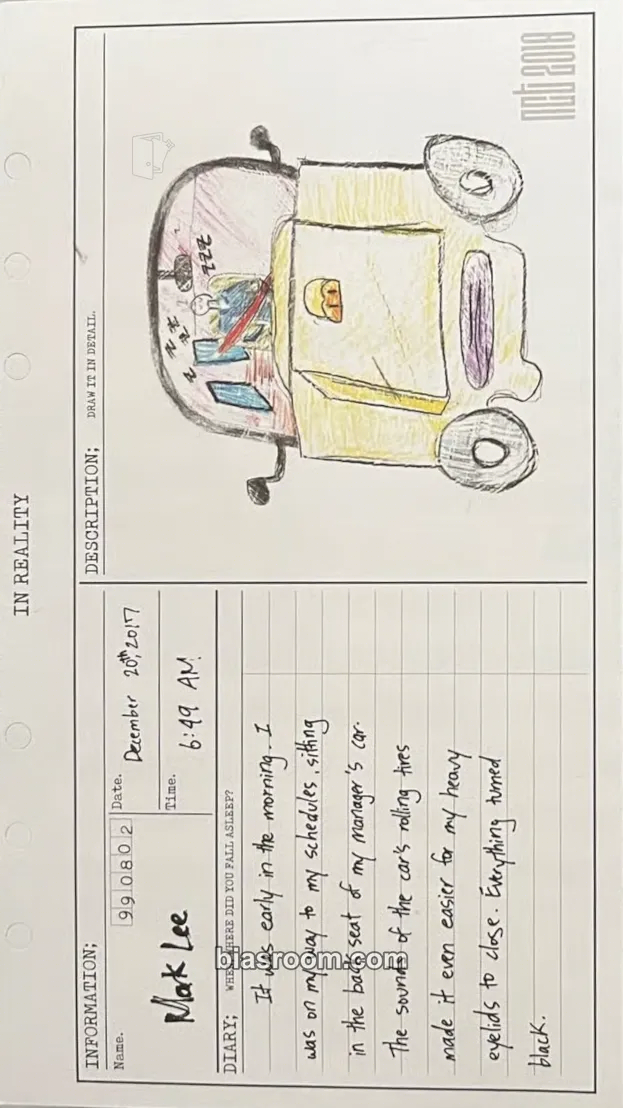 IN REALITY
INFORMATION;
Name.
990802
Mark Lee
Date.
December 20th, 2017
Time.
6:49 AM.
DIARY; WHEN/WHERE DID YOU FALL ASLEEP?
It was early in the morning. I
was on my way to my schedules, sitting
in the back seat of my manager's car.
The sounds of the car's rolling tires
made it even easier for my heavy
eyelids to close. Everything turned
black.
DESCRIPTION; DRAW IT IN DETAIL.
z z z z
zzz
nct 2018
biasroom.com